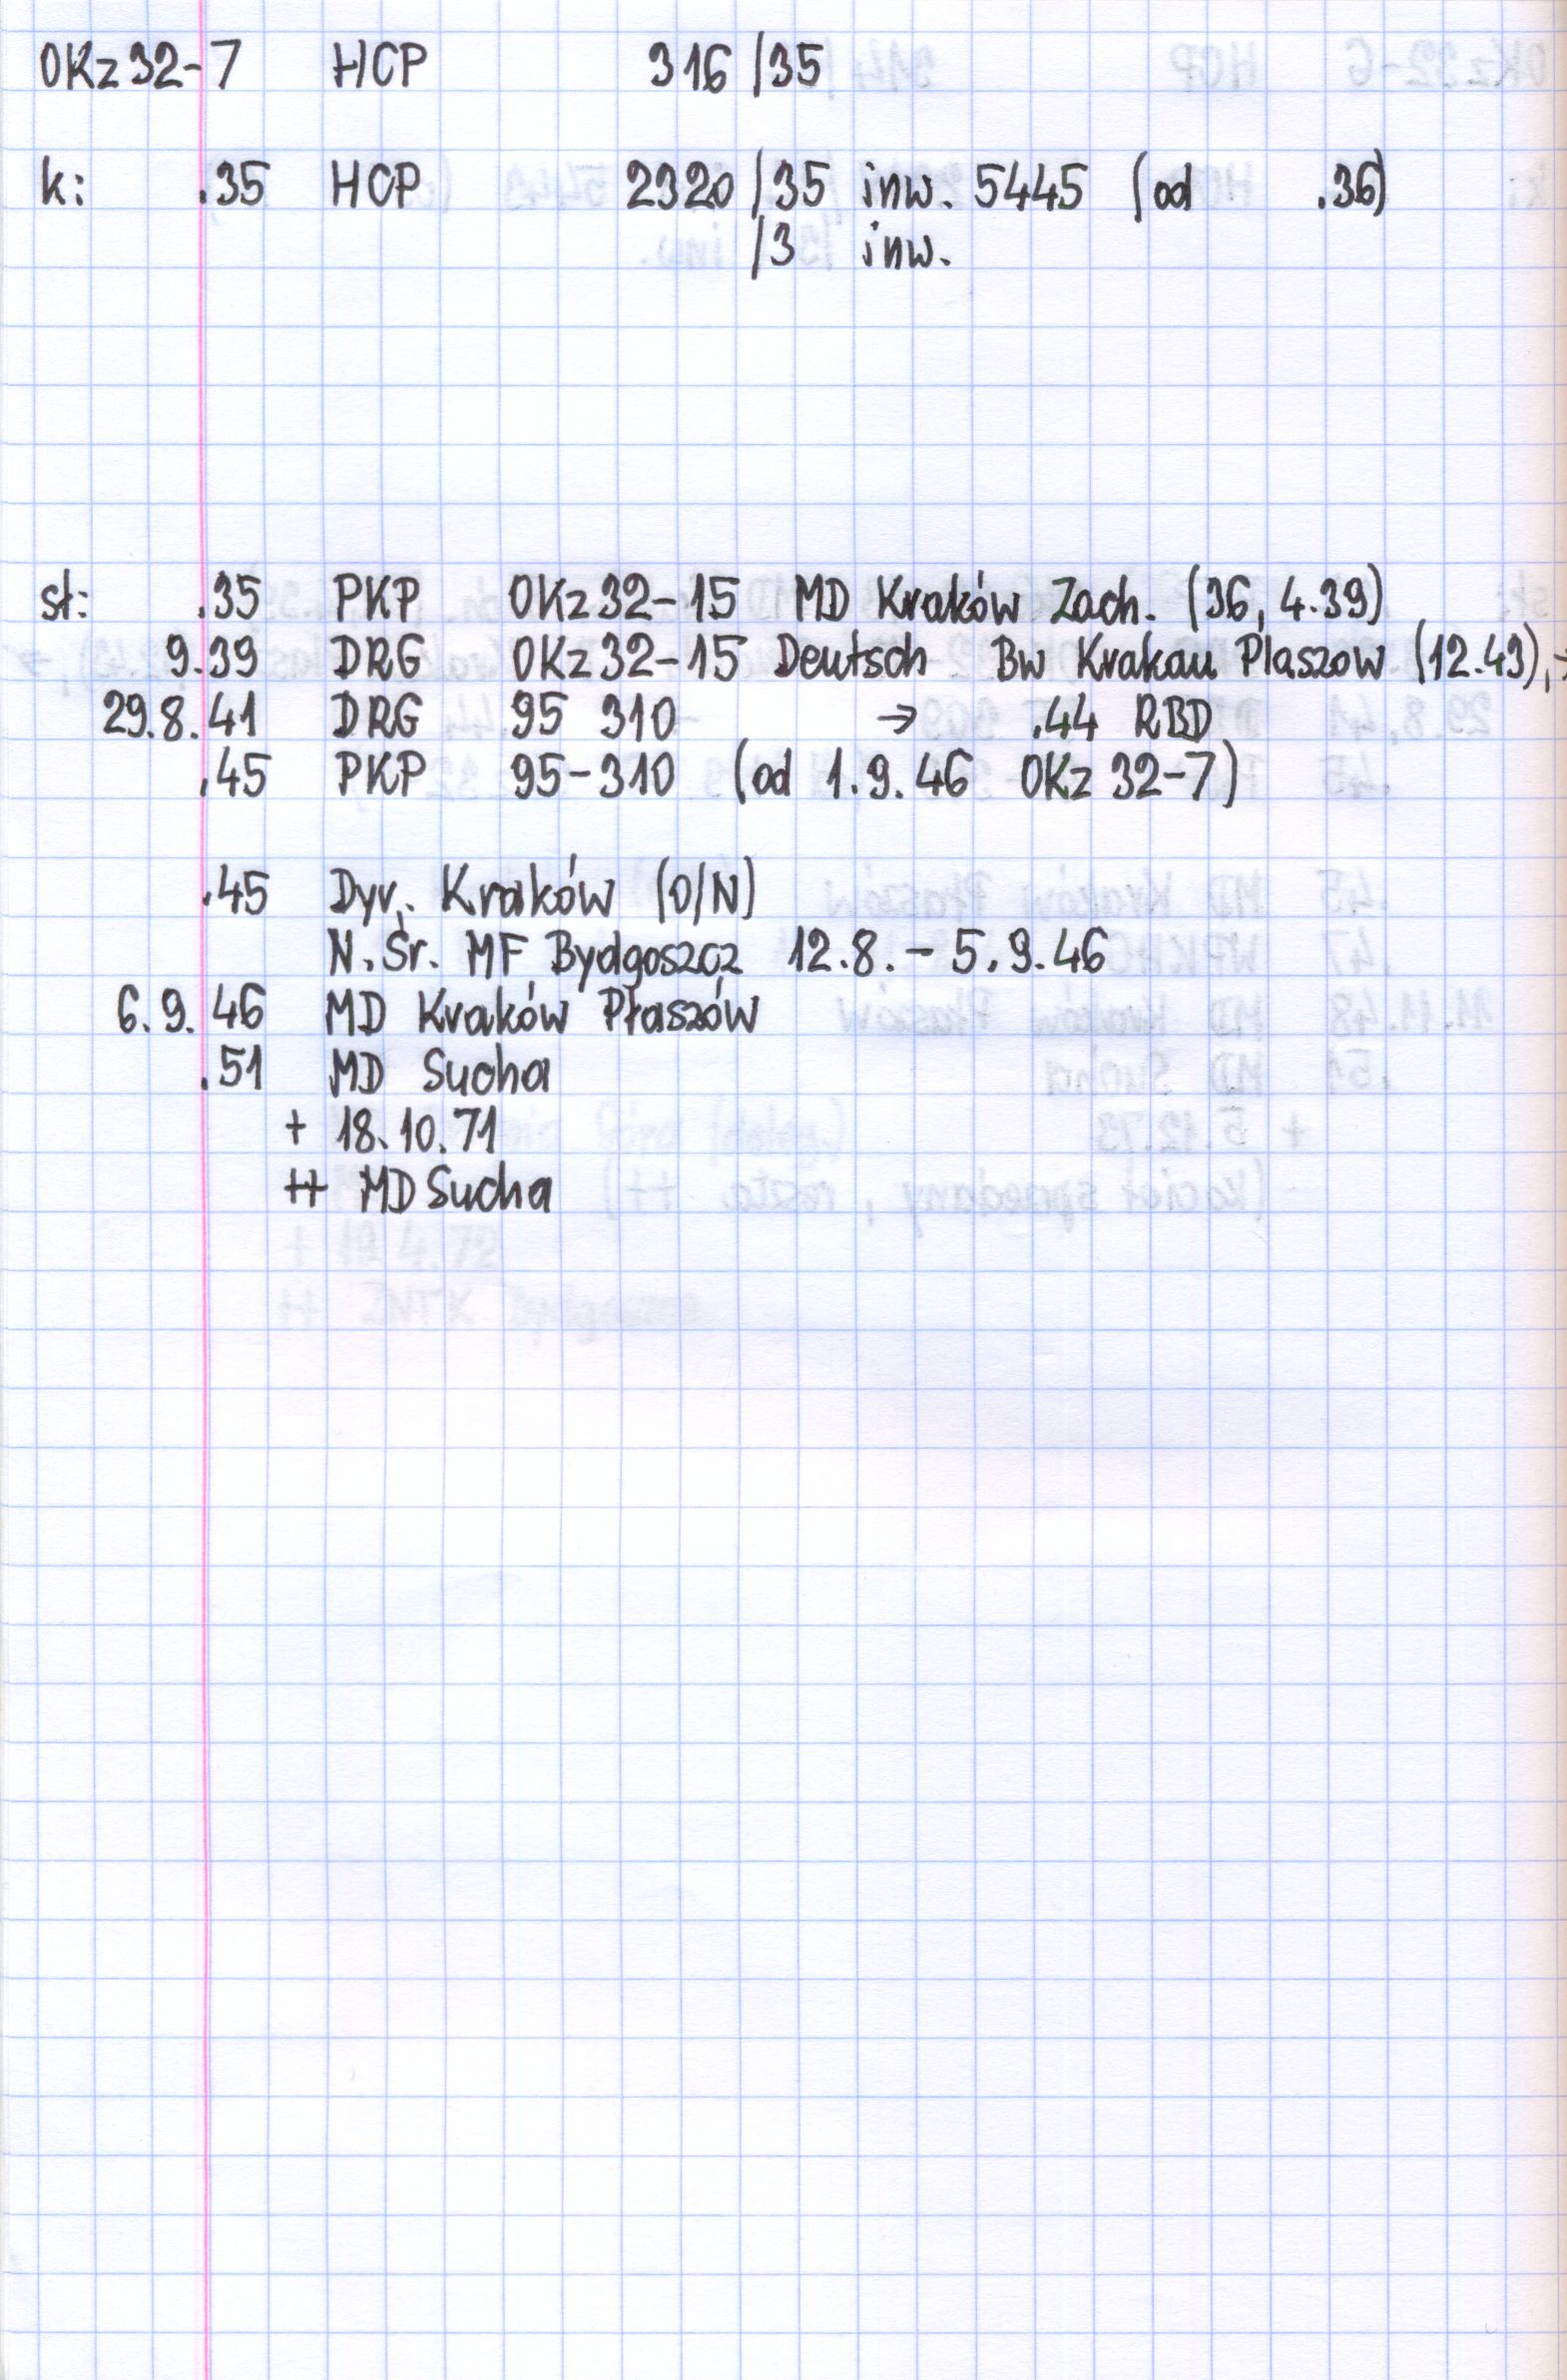 OKz32-7 HCP 316/35
k: .35 HCP 2320/35 inw. 5445 (od .36)
/3 inw.
st: .35 PKP OKz32-15 MD Kraków Zach. (36, 4.39)
9.39 DRG OKz32-15 Deutsch Bw Krakau Plaszow (12.43),
29.8.41 DRG 95 310 → .44 RBD
.45 PKP 95-310 (od 1.9.46 OKz 32-7)
.45 Dyr. Kraków (O/N)
N.Śr. MF Bydgoszcz 12.8.- 5.9.46
6.9.46 MD Kraków Płaszów
.51 MD Sucha
+ 18.10.71
++ MD Sucha